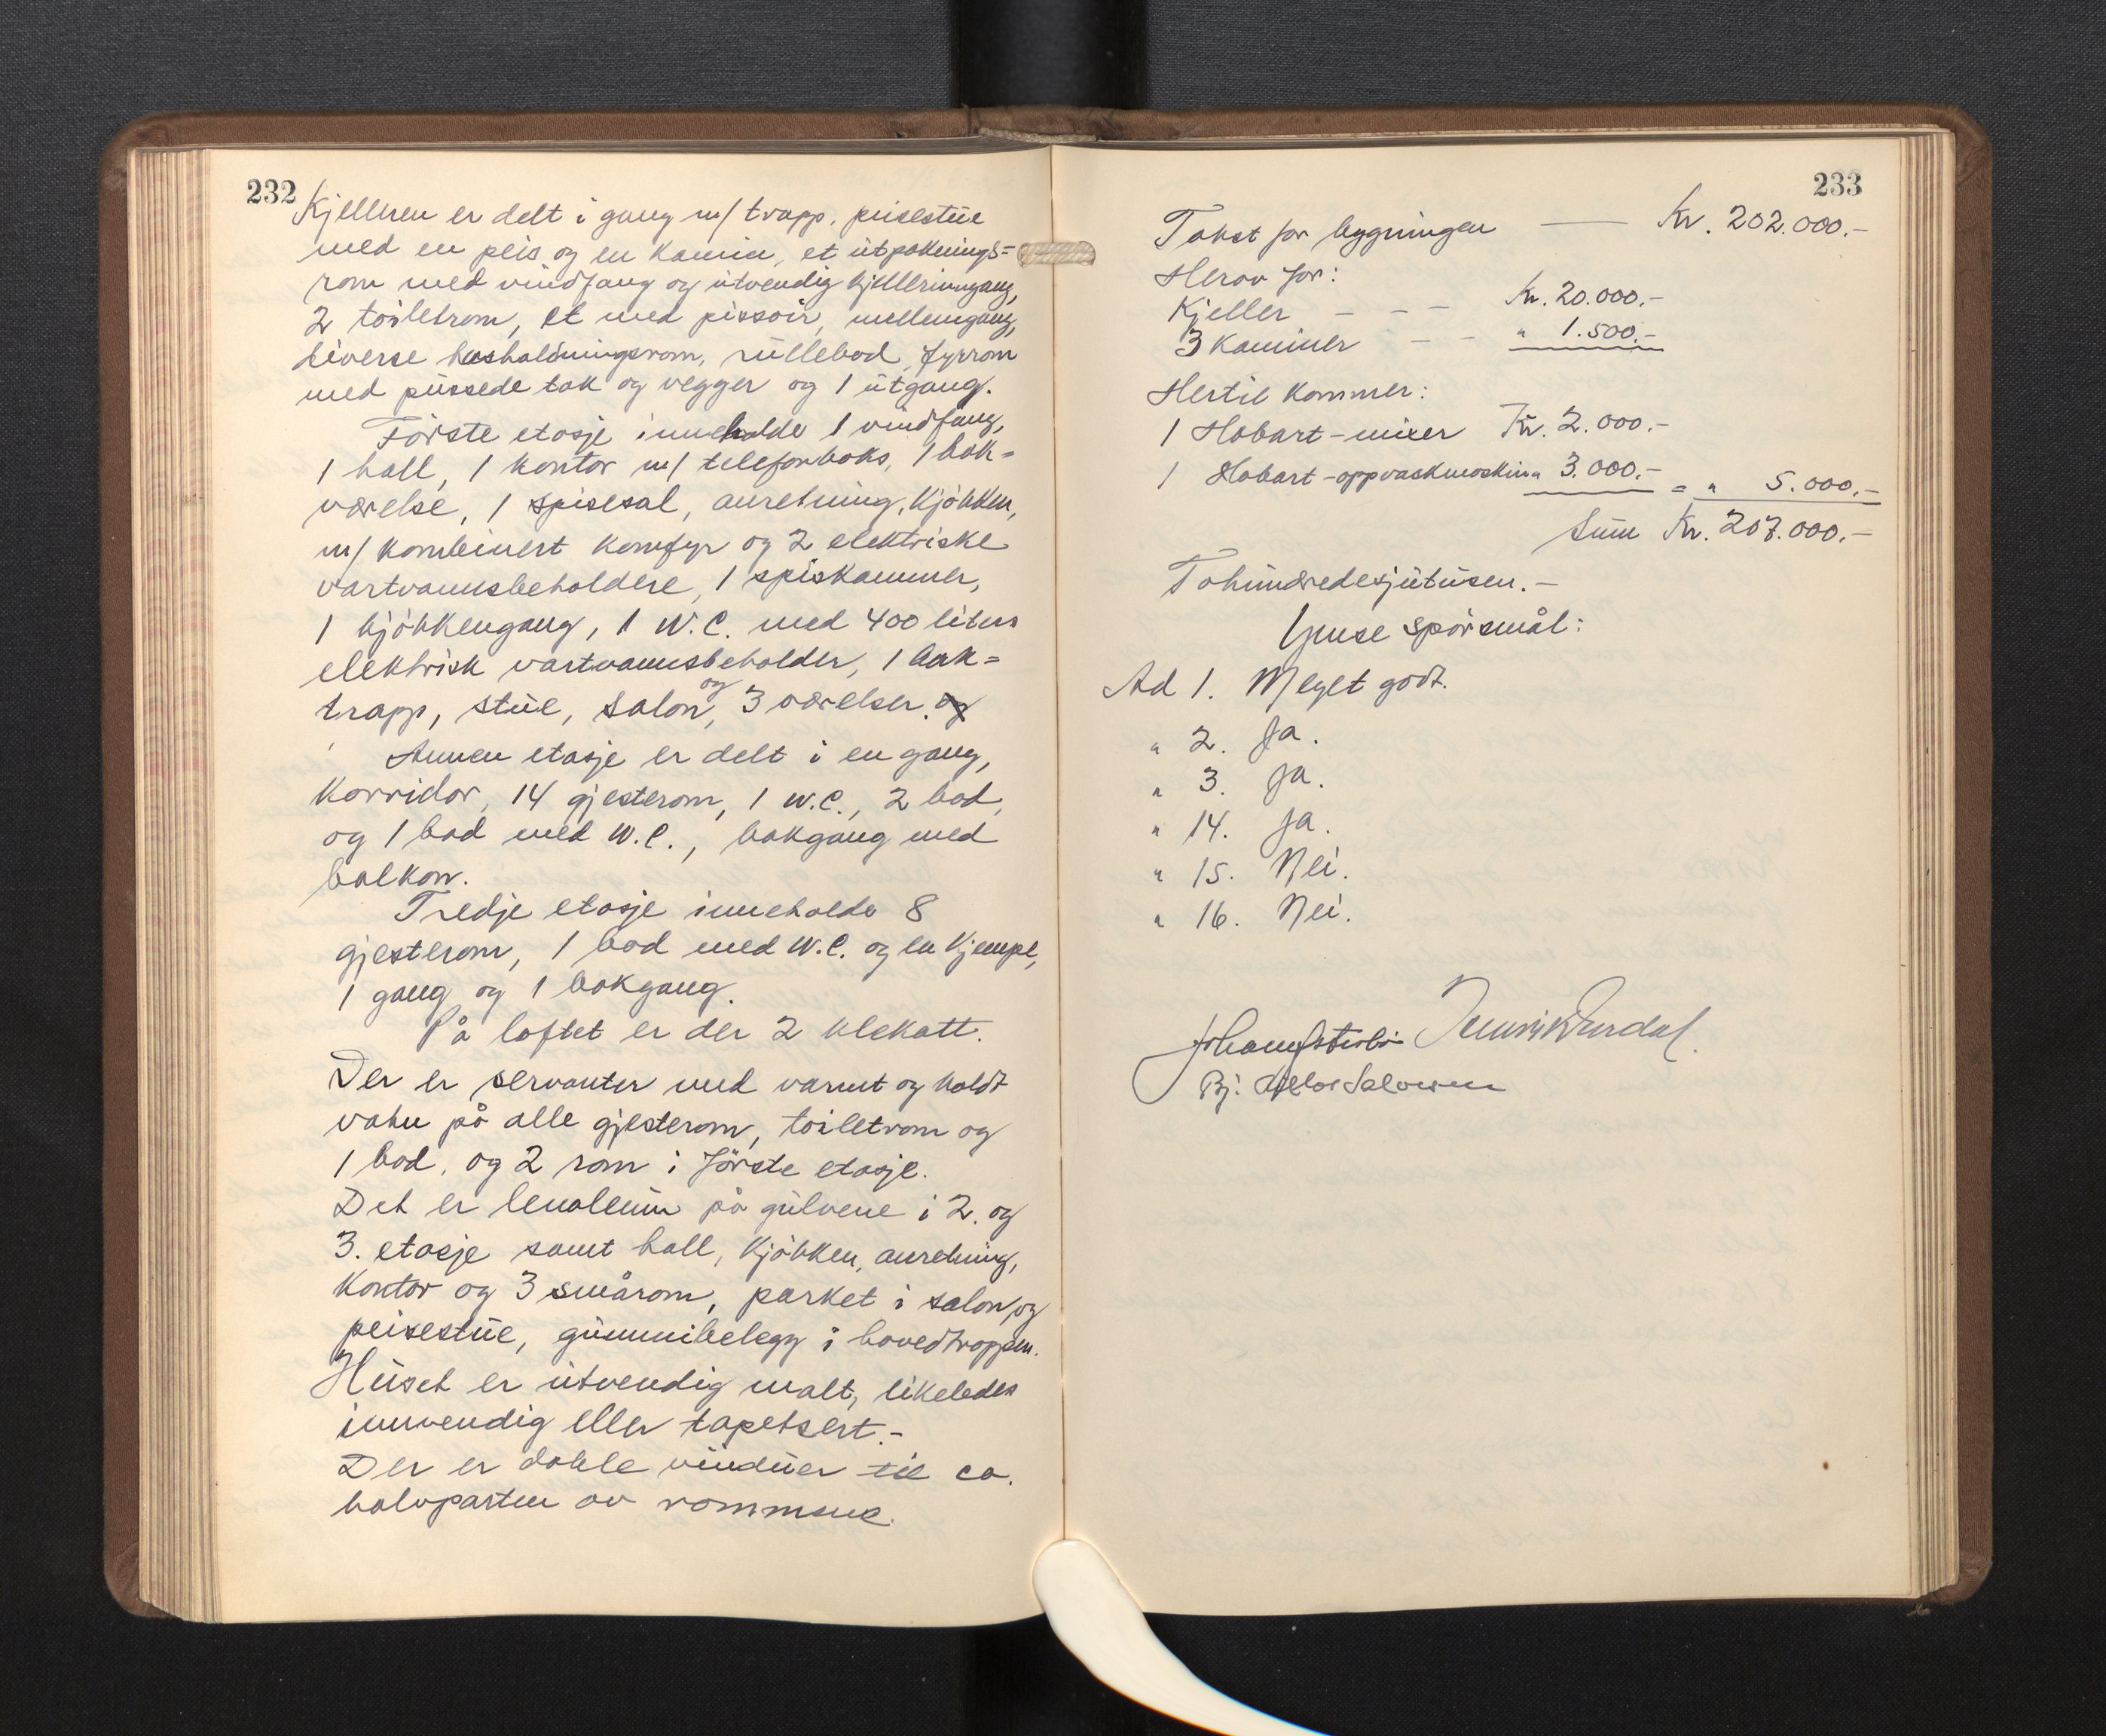 232
Kjelleren er delt i gang m/ trapp, peisestue
med en peis og en kamin, et utpaknings=
rom med vindfang og utvendig kjellerinngang,
2 toiletrom, et med pissoir, mellemgang,
diverse husholdningsrom, rullebod, fyrrom
med pussede tak og vegger og 1 utgang.
Første etasje inneholder 1 vindfang,
1 hall, 1 kontor m/ telefonboks, 1 bak=
værelse, 1 spisesal, anretning, kjøkken,
m/ kombinert komfyr og 2 elektriske
vartvannsbeholdere, 1 spiskammer,
1 kjøkkengang, 1 W.C. med 400 liters
elektrisk vartvannsbeholder, 1 bak=
trapp, stue, salon, og 3 værelser.
Annen etasje er delt i en gang,
korridor, 14 gjesterom, 1 W.C., 2 bad,
og 1 bad med W.C., bakgang med
balkon.
Tredje etasje inneholder 8
gjesterom, 1 bad med W.C. og en kjempe,
1 gang og 1 bakgang.
På loftet er der 2 klekott.
Der er servanter med varmt og koldt
vann på alle gjesterom, toiletrom og
1 bad, og 2 rom i første etasje.
Det er lenoleum på gulvene i 2. og
3. etasje samt hall, kjøkken, anretning,
kontor og 3 smårom, parket i salon, og
peisestue, gummibelegg i hovedtroppen.
Huset er utvendig malt, likeledes
innvendig eller tapetsert.-
Der er doble vinduer til ca.
halvparten av rommene.
233
Takst for bygningen — Kr. 202.000.-
Herav for:
Kjeller - - - Kr. 20.000.-
3 Kaminer - - " 1.500.-
Hertil kommer:
1 Hobart-mixer Kr. 2.000.-
1 Hobart-oppvaskmaskin " 3.000.- = " 5.000.-
Sum Kr. 207.000.-
Tohundredesjutusen.-
spørsmål:
Ad 1. Meget godt.
" 2. Ja.
" 3. Ja.
" 14. Ja.
" 15. Nei.
" 16. Nei.